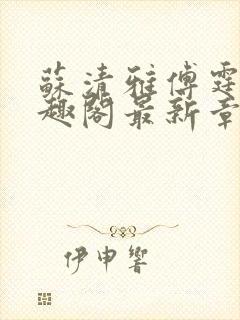 蘇清雅傅霆
趣閣最新章
伊申響